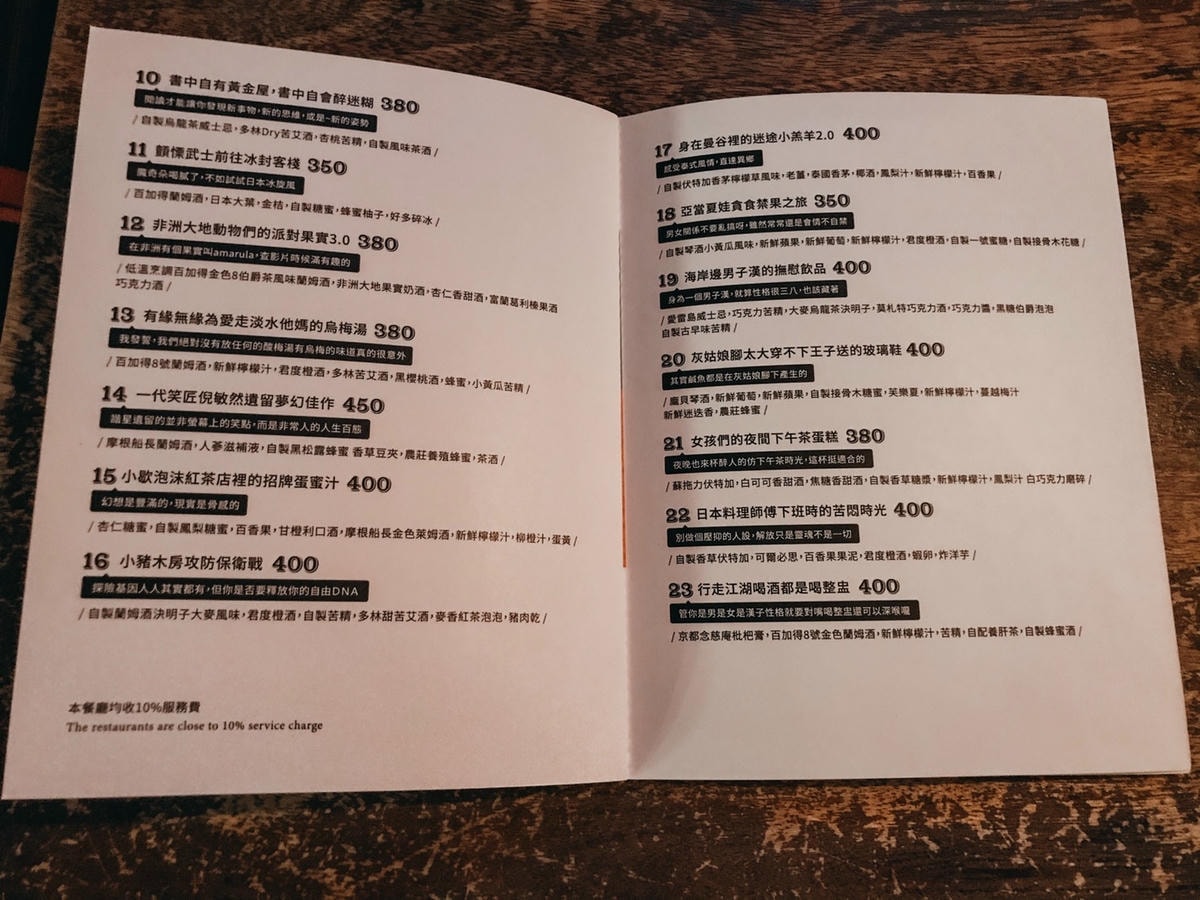 10 書中自有黃金屋,書中自會醉迷糊 380
閱讀才能讓你發現新事物,新的思維,或是~新的姿勢
/ 自製烏龍茶威士忌,多林Dry苦艾酒,杏桃苦精,自製風味茶酒 /
11 顫慄武士前往冰封客棧 350
魔奇朵喝膩了,不如試試日本冰旋風
/ 百加得蘭姆酒,日本大葉,金桔,自製糖蜜,蜂蜜柚子,好多碎冰 /
12 非洲大地動物們的派對果實3.0 380
在非洲有個果實叫amarula,查影片時候滿有趣的
/ 低溫烹調百加得金色8伯爵茶風味蘭姆酒,非洲大地果實奶酒,杏仁香甜酒,富蘭葛利榛果酒
巧克力酒 /
13 有緣無緣為愛走淡水他媽的烏梅湯 380
我發誓,我們絕對沒有放任何的酸梅湯有烏梅的味道真的很意外
/ 百加得8號蘭姆酒,新鮮檸檬汁,君度橙酒,多林苦艾酒,黑櫻桃酒,蜂蜜,小黃瓜苦精 /
14 一代笑匠倪敏然遺留夢幻佳作 450
諧星遺留的並非螢幕上的笑點,而是非常人的人生百態
/ 摩根船長蘭姆酒,人蔘滋補液,自製黑松露蜂蜜 香草豆夾,農莊養殖蜂蜜,茶酒 /
15 小歇泡沫紅茶店裡的招牌蛋蜜汁 400
幻想是豐滿的,現實是骨感的
/ 杏仁糖蜜,自製鳳梨糖蜜,百香果,甘橙利口酒,摩根船長金色萊姆酒,新鮮檸檬汁,柳橙汁,蛋黃 /
16 小豬木房攻防保衛戰 400
探險基因人人其實都有,但你是否要釋放你的自由DNA
/ 自製蘭姆酒決明子大麥風味,君度橙酒,自製苦精,多林甜苦艾酒,麥香紅茶泡泡,豬肉乾 /
本餐廳均收10%服務費
The restaurants are close to 10% service charge
17 身在曼谷裡的迷途小羔羊2.0 400
感受泰式風情,直達異鄉
/ 自製伏特加香茅檸檬草風味,老薑,泰國香茅,椰酒,鳳梨汁,新鮮檸檬汁,百香果 /
18 亞當夏娃貪食禁果之旅 350
男女關係不要亂搞呀,雖然常常還是會情不自禁
/ 自製琴酒小黃瓜風味,新鮮蘋果,新鮮葡萄,新鮮檸檬汁,君度橙酒,自製一號蜜糖,自製接骨木花糖 /
19 海岸邊男子漢的撫慰飲品 400
身為一個男子漢,就算性格很三八,也該藏著
/ 愛雷島威士忌,巧克力苦精,大麥烏龍茶決明子,莫札特巧克力酒,巧克力醬,黑糖伯爵泡泡
自製古早味苦精 /
20 灰姑娘腳太大穿不下王子送的玻璃鞋 400
其實鹹魚都是在灰姑娘腳下產生的
/ 龐貝琴酒,新鮮葡萄,新鮮蘋果,自製接骨木糖蜜,芙樂夏,新鮮檸檬汁,蔓越梅汁
新鮮迷迭香,農莊蜂蜜 /
21 女孩們的夜間下午茶蛋糕 380
夜晚也來杯醉人的仿下午茶時光,這杯挺適合的
/ 蘇拖力伏特加,白可可香甜酒,焦糖香甜酒,自製香草糖漿,新鮮檸檬汁,鳳梨汁 白巧克力磨碎 /
22 日本料理師傅下班時的苦悶時光 400
別做個壓抑的人設,解放只是靈魂不是一切
/ 自製香草伏特加,可爾必思,百香果果泥,君度橙酒,蝦卵,炸洋芋 /
23 行走江湖喝酒都是喝整盅 400
管你是男是女是漢子性格就要對嘴喝整盅還可以深喉嚨
/ 京都念慈庵枇杷膏,百加得8號金色蘭姆酒,新鮮檸檬汁,苦精,自配養肝茶,自製蜂蜜酒 /